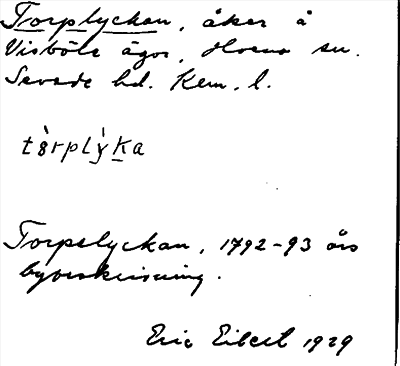 Torplyckan, åker å
Visböle ägor, Horns sn.
Sevede hd. Kem. l.
tòrplỳka
Torpslyckan, 1792-93 års
bybeskrivning.
Eric Eilert 1929